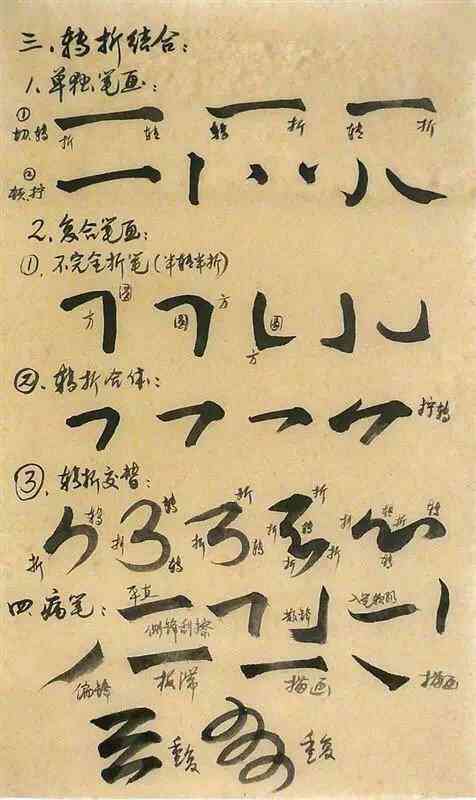 三、转折结合：
1.单独笔画：
①切、转 折 转 转 折 转 折
②顿、拧
2.复合笔画：
①、不完全折笔（半转半折）
方 圆 圆 方 圆 方
②、转折合体：
拧转
③、转折交替：
折 转 折 转 转 折 折 转 折 折 转 折 折 转 折 转 转
四、病笔：
平直 侧锋刮擦 散锋
偏锋 板滞 描画 描画
重复 重复